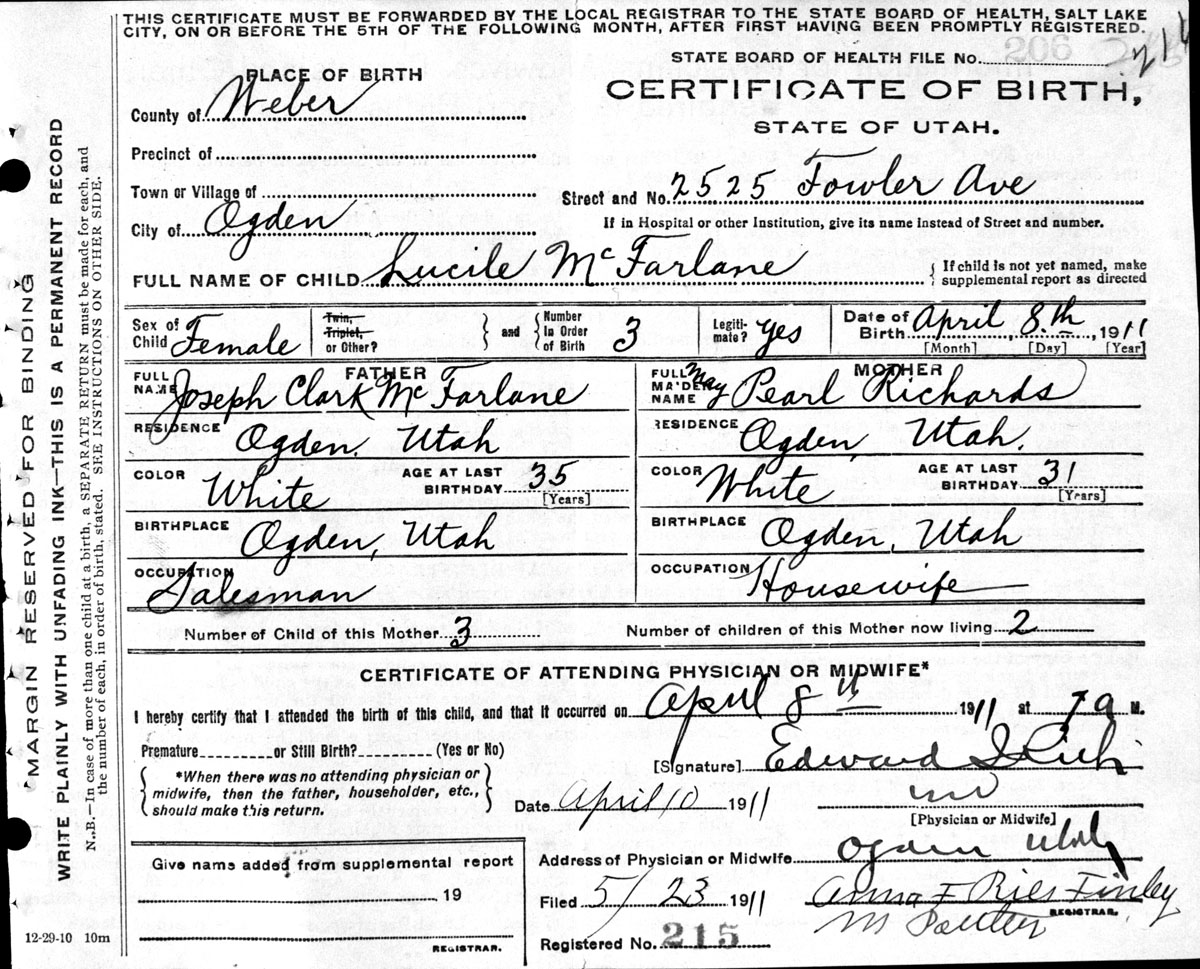 THIS CERTIFICATE MUST BE FORWARDED BY THE LOCAL REGISTRAR TO THE STATE BOARD OF HEALTH, SALT LAKE
CITY, ON OR BEFORE THE 5TH OF THE FOLLOWING MONTH, AFTER FIRST HAVING BEEN PROMPTLY REGISTERED.
206
STATE BOARD OF HEALTH FILE No.
PLACE OF BIRTH
CERTIFICATE OF BIRTH,
STATE OF UTAH.
County of Weber
Precinct of
Town or Village of
Street and No. 2525 Fowler Ave
City of Ogden
If in Hospital or other Institution, give its name instead of Street and number.
FULL NAME OF CHILD Lucile McFarlane
If child is not yet named, make
supplemental report as directed
Sex of Child Female
Twin, Triplet, or Other?
and
Number In Order of Birth 3
Legiti-mate? Yes
Date of Birth April 8th, 1911
[Month] [Day] [Year]
FATHER
FULL NAME Joseph Clark McFarlane
RESIDENCE Ogden, Utah
COLOR White
AGE AT LAST BIRTHDAY 35
[Years]
BIRTHPLACE Ogden, Utah
OCCUPATION Salesman
MOTHER
FULL MAIDEN NAME May Pearl Richards
RESIDENCE Ogden, Utah.
COLOR White
AGE AT LAST BIRTHDAY 31
[Years]
BIRTHPLACE Ogden, Utah
OCCUPATION Housewife
Number of Child of this Mother 3
Number of children of this Mother now living 2
CERTIFICATE OF ATTENDING PHYSICIAN OR MIDWIFE*
I hereby certify that I attended the birth of this child, and that it occurred on April 8th 1911 at 7 a M.
Premature or Still Birth? (Yes or No)
[Signature] Edward I Rich
*When there was no attending physician or
midwife, then the father, householder, etc.,
should make this return.
Date April 10 1911
MD
[Physician or Midwife]
Give name added from supplemental report
, 19
REGISTRAR.
Address of Physician or Midwife Ogden Utah
Filed 5/23 1911
Anna F Ries Finley
REGISTRAR.
Registered No. 215
12-29-10 10m
MARGIN RESERVED FOR BINDING
WRITE PLAINLY WITH UNFADING INK—THIS IS A PERMANENT RECORD
N.B.—In case of more than one child at a birth, a SEPARATE RETURN must be made for each, and
the number of each, in order of birth, stated. SEE INSTRUCTIONS ON OTHER SIDE.